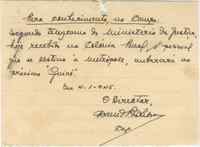 Para conhecimento, no Campo,
segundo telegrama do Ministerio da Justiça,
hoje recebido na Colonia Penal, o pessoal
que se destina à metrópole, embarcará no
próximo "Guiné".
Em 4-1-945.
O Director,